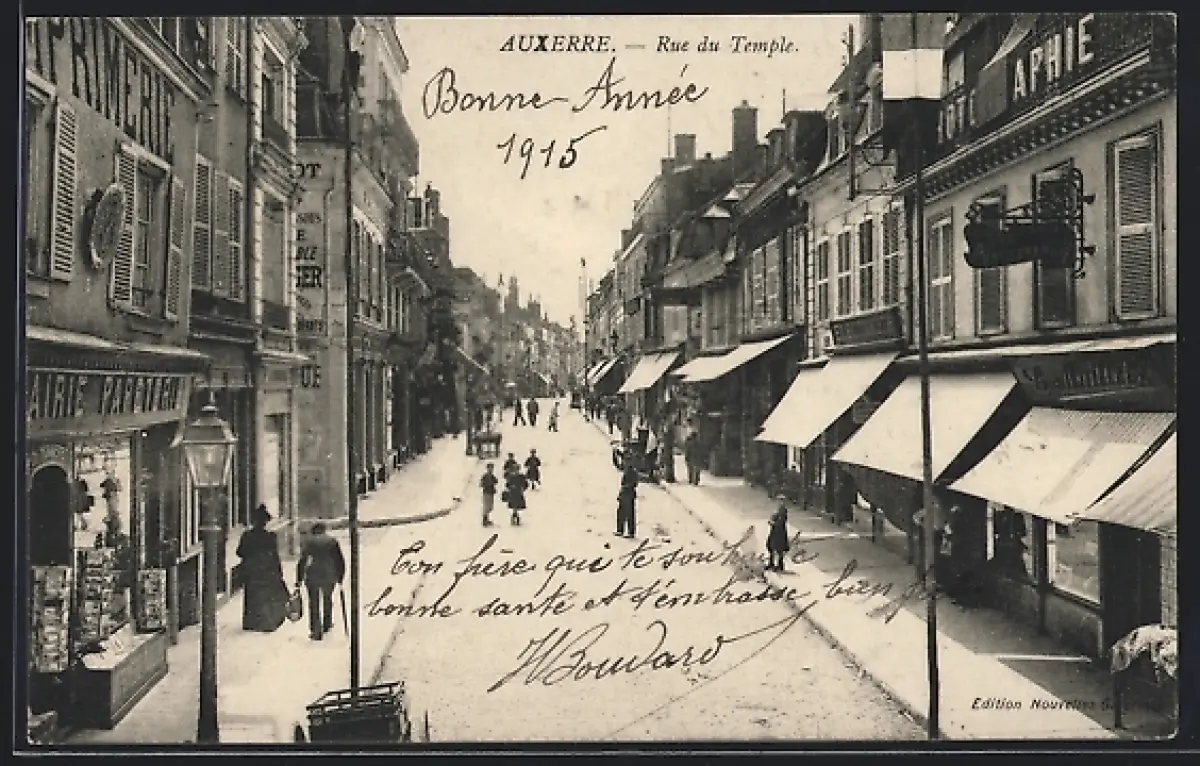 AUXERRE. — Rue du Temple.
Bonne-Année
1915
PRIMERIE
APHIE
OT
E
IER
UE
AIRIE PAPETERIE
Ton frère qui te souhaite
bonne santé et t'embrasse bien
HBoudard
Edition Nouvelles